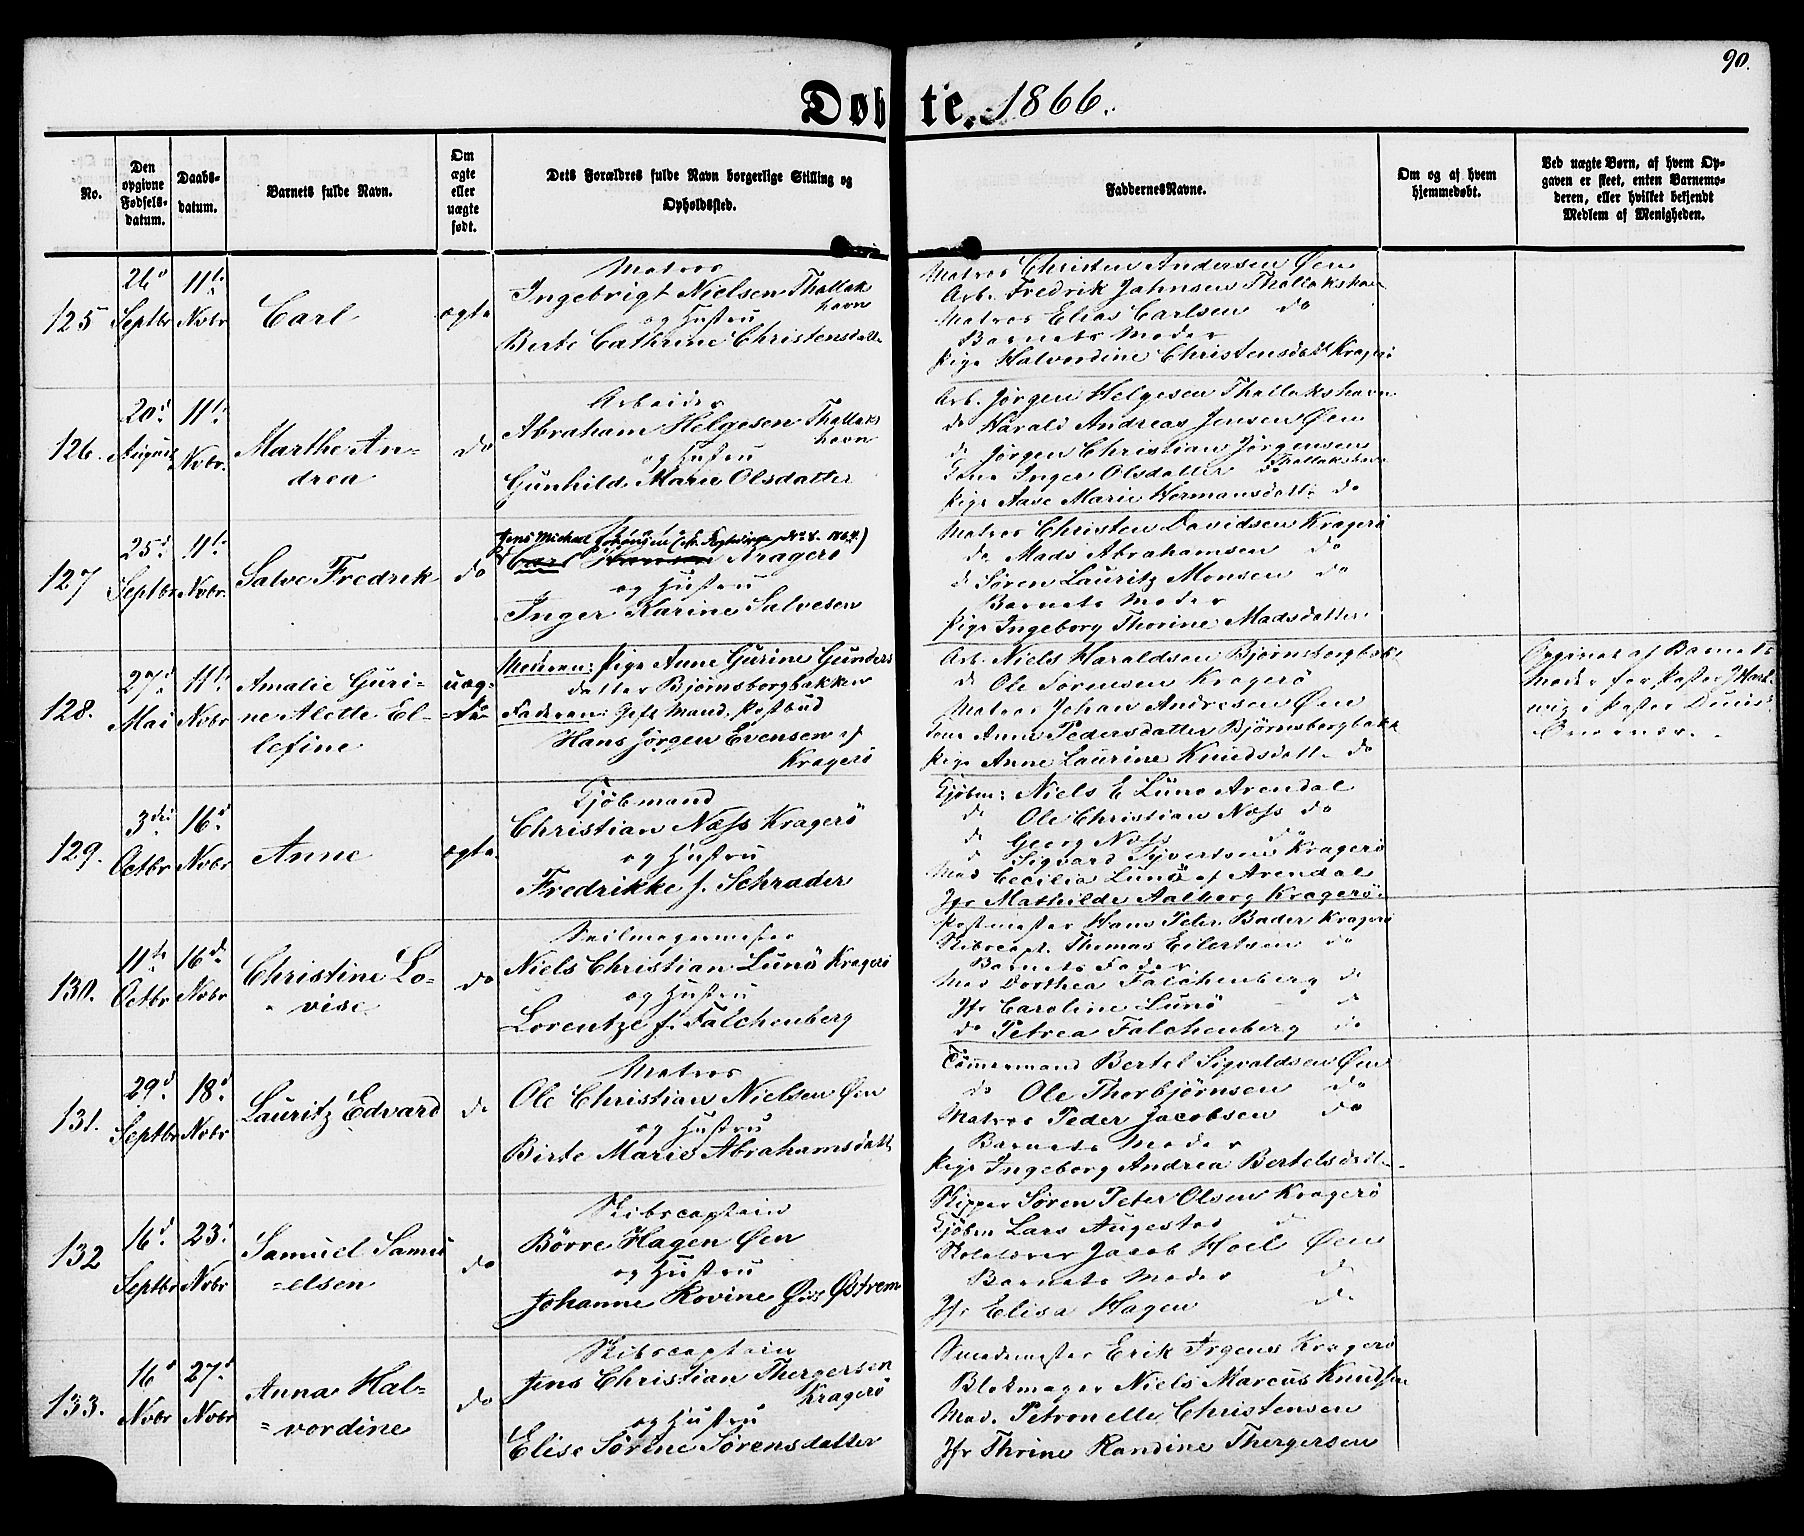 90.
Døbte. 1866.
No.
Den opgivne Fødselsdatum.
Daabsdatum.
Barnets fulde Navn.
Om ægte eller uægte født.
Dets Forældres fulde Navn borgerlige Stilling og Opholdssted.
Faddernes Navne.
Om og af hvem hjemmedøbt.
Ved uægte Børn, af hvem Opgaven er skeet, enten Barnemoderen, eller hvilket bekjendt Medlem af Menigheden.
125
26d Septbr
11te Novbr
Carl
ægte
Matros
Ingebrigt Nielsen Thallakshavn
og Hustru
Berte Cathrine Christensdatter
Matros Christen Andersen Øen
Arb. Fredrik Johnsen Thallakshavn
Matros Elias Carlsen do
Barnets Moder
Pige Halvordine Christensdatt Kragerö
126.
20d August
11te Novbr.
Marthe Andrea
do
Arbeider
Abraham Helgesen Thallakshavn
og Hustru
Gunhild Marie Olsdatter
Arb. Jørgen Helgesen Thallakshavn
do Harald Andreas Jensen Øen
do Jørgen Christian Jörgensen Thallakshavn
Kone Inger Olsdatter do
Pige Aase Marie Hermansdatt. do
127
25d Septbr
11te Novbr.
Salve Fredrik
do
Jens Michael Johansen
Kragerö
og Hustru
Inger Karine Salvesen
Matros Christen Davidsen Kragerö
do Mads Abrahamsen do
d Søren Lauritz Monsen do
Barnets Moder
Pige Ingeborg Thorine Madsdatter
128.
27d Mai
11te Novbr
Amalie Gurine Alette Ellefine
uægte
Moderen: Pige Anne Gurine Gundersdatter Bjørnsborgbakken
Faderen: Gift Mand, Postbud
Hans Jørgen Evensen af
Kragerö
Arb. Niels Haraldsen Bjørnsborgbak.
do Ole Sørensen Kragerö
Matros Johan Andresen Øen
Kone Anne Pedersdatter Bjørnsborgbakk
Pige Anne Laurine Knudsdatt. do
Opgivet af Barnets
Moder for Pastor Hartwig i Pastor
129.
3die Octbr
16d Novbr
Anne
ægte
Kjöbmand
Christian Næss Kragerö
og Hustru
Fredrikke f. Schrader
Kjöbm: Niels E Lunø Arendal
do Ole Christian Næss do
d Georg Næss d
d Sigvard Syvertsen Kragerö
Mad Cecilia Lunö af Arendal
Jfr Mathilde Aalborg Kragerö
130.
11te Octbr
16de Novbr
Christine Lovise
do
Seilmagermester
Niels Christian Lunö Kragerö
og Hustru
Lorentze f. Falchenberg
Postmester Hans Peter Bader Kragerö
Skibscapt. Thomas Eilertsen do
Barnets Fader
Mad Dorthea Falchenberg d
Jfr Caroline Lunö d
do Petrea Falchenberg do
131.
29d Septbr
18d Novbr
Lauritz Edvard
do
Matros
Ole Christian Nielsen Øen
og Hustru
Birte Marie Abrahamsdatt
Tömmermand Bertel Sigvaldsen Øen
do Ole Thorbjörnsen do
Matros Peder Jacobsen do
Barnets Moder
Pige Ingeborg Andrea Bertelsdatt.
132
16d Septbr
23d Novbr
Samuel Samuelsen
do
Skibscaptein
Börre Hagen Øen
og Hustru
Johanne Rovine Østrem
Skipper Sören Peter Olsen Kragerö
Kjöbm Lars Augestad d
Skolelærer Jacob Hoel Øen
Barnets Moder d
Jfr Elisa Hagen d
133.
16d Novbr
27d Novbr
Anna Halvordine
do
Skibscaptein
Jens Christian Thergersen
Kragerö
og Hustru
Elise Sörine Sörensdatter
Smedemester Erik Irgens Kragerö
Blokmager Niels Marcus Knudsen
Mad. Petronelle Christensen
Jfr Thrine Randine Thergersen